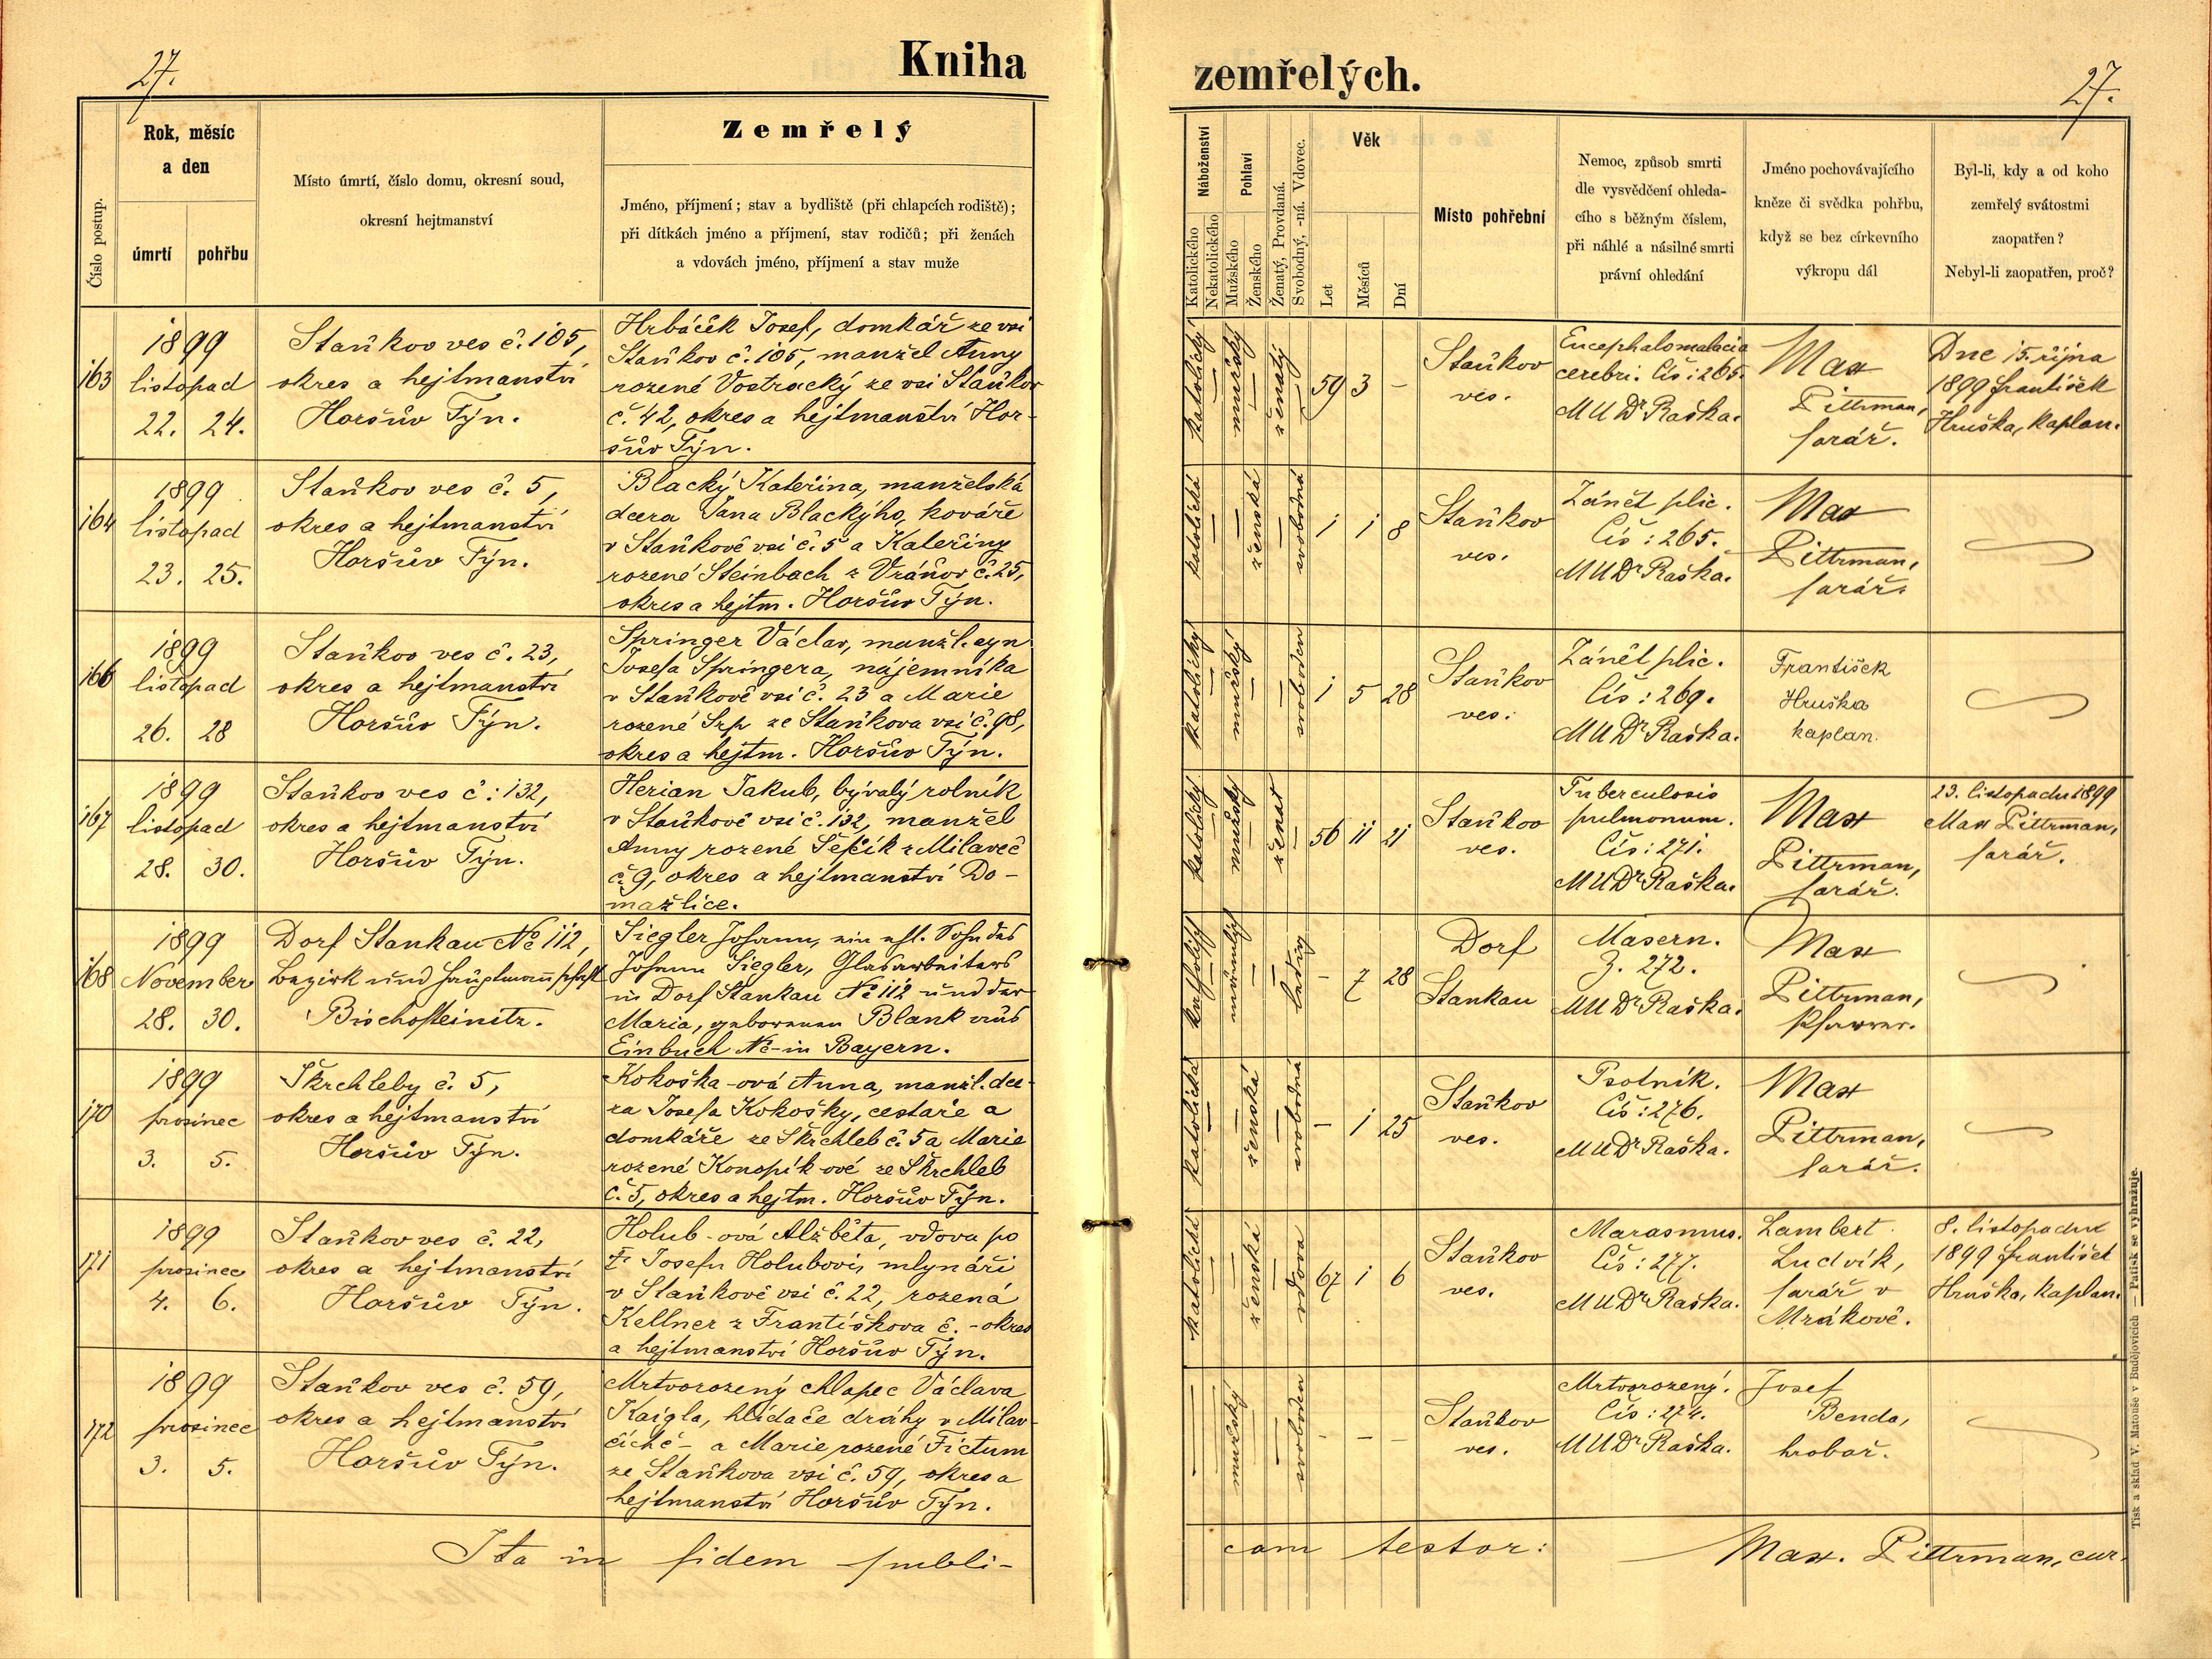 27.
Kniha
Číslo postup.
Rok, měsíc
a den
úmrtí
pohřbu
Místo úmrtí, číslo domu, okresní soud,
okresní hejtmanství
Zemřelý
Jméno, příjmení; stav a bydliště (při chlapcích rodiště);
při dítkách jméno a příjmení, stav rodičů; při ženách
a vdovách jméno, příjmení a stav muže
163
1899
listopad
22. 24.
Staňkov ves č. 105,
okres a hejtmanství
Horšův Týn.
Hrbáček Josef, domkář ze vsi
Staňkov č. 105, manžel Anny
rozené Vostracký ze vsi Staňkov
č. 42, okres a hejtmanství Hor-
šův Týn.
164
1899
listopad
23. 25.
Staňkov ves č. 5,
okres a hejtmanství
Horšův Týn.
Blacký Kateřina, manželská
dcera Jana Blackýho, kováře
v Staňkově vsi č. 5 a Kateřiny
rozené Steinbach z Vráňov č. 25,
okres a hejtm. Horšův Týn.
166
1899
listopad
26. 28
Staňkov ves č. 23,
okres a hejtmanství
Horšův Týn.
Springer Václav, manžl. syn
Josefa Springera, nájemníka
v Staňkově vsi č. 23 a Marie
rozené Srp ze Staňkova vsi č. 98,
okres a hejtm. Horšův Týn.
167
1899
listopad
28. 30.
Staňkov ves č: 132,
okres a hejtmanství
Horšův Týn.
Herian Jakub, bývalý rolník
v Staňkově vsi č. 132, manžel
Anny rozené Šefčík z Milaveč
č. 9, okres a hejtmanství Do-
mažlice.
168
1899
November
28. 30.
Dorf Stankau No 112,
Bezirk und Hauptmannschaft
Bischofteinitz.
Siegler Johann, ein ehl. Sohn des
Johann Siegler, Glasarbeiters
in Dorf Stankau No 112 und der
Maria, geborenen Blank aus
Einbuch No - in Bayern.
170
1899
prosinec
3. 5.
Škrchleby č. 5,
okres a hejtmanství
Horšův Týn.
Kokoška-ová Anna, manžl. dce-
ra Josefa Kokošky, cestaře a
domkáře ze Škrchleb č. 5 a Marie
rozené Konopík-ové ze Škrchleb
č. 5, okres a hejtm. Horšův Týn.
171
1899
prosinec
4. 6.
Staňkov ves č. 22,
okres a hejtmanství
Horšův Týn.
Holub-ová Alžběta, vdova po
Josefu Holubovi, mlynáři
v Staňkově vsi č. 22, rozená
Kellner z Františkova č. - okres
a hejtmanství Horšův Týn.
172
1899
prosinec
3. 5.
Staňkov ves č. 59,
okres a hejtmanství
Horšův Týn.
Mrtvorozený chlapec Václava
Kaigla, hlídače dráhy v Milav-
čích č - a Marie, rozené Fictum
ze Staňkova vsi č. 59, okres a
hejtmanství Horšův Týn.
Ita in fidem publi-
zemřelých.
27.
Náboženství
Katolického
Nekatolického
Pohlaví
Mužského
Ženského
Ženatý, Provdaná.
Svobodný, -ná. Vdovec.
Věk
Let
Měsíců
Dní
Místo pohřební
Nemoc, způsob smrti
dle vysvědčení ohleda-
cího s běžným číslem,
při náhlé a násilné smrti
právní ohledání
Jméno pochovávajícího
kněze či svědka pohřbu,
když se bez církevního
výkropu dál
Byl-li, kdy a od koho
zemřelý svátostmi
zaopatřen?
Nebyl-li zaopatřen, proč?
katolický
mužský
ženatý
59 3 -
Staňkov
ves.
Encephalomalacia
cerebri. Čís: 265.
MUDr Raška.
Max
Pittrman,
farář.
Dne 15. října
1899 František
Hruška, kaplan.
katolická
ženská
svobodná
1 1 8
Staňkov
ves.
Zánět plic.
Čís: 265.
MUDr Raška.
Max
Pittrman,
farář.
katolický
mužský
svoboden
1 5 28
Staňkov
ves.
Zánět plic.
Čís: 269.
MUDr Raška.
František
Hruška
kaplan.
katolický
mužský
ženat
56 11 21
Staňkov
ves.
Tuberculosis
pulmonum.
Čís: 271.
MUDr Raška.
Max
Pittrman,
farář.
23. listopadu 1899
Max Pittrman,
farář.
katholisch
männlich
ledig
- 7 28
Dorf
Stankau
Masern.
Z. 272.
MUDr Raška.
Max
Pittrman,
Pfarrer.
katolická
ženská
svobodná
- 1 25
Staňkov
ves.
Psotník.
Čís: 276.
MUDr Raška.
Max
Pittrman,
farář.
katolická
ženská
vdova
67 1 6
Staňkov
ves.
Marasmus.
Čís: 277.
MUDr Raška.
Lambert
Ludvík,
farář v
Mrákově.
8. listopadu
1899 František
Hruška, kaplan.
mužský
svoboden
- - -
Staňkov
ves.
Mrtvorozený.
Čís: 274.
MUDr Raška.
Josef
Benda,
hrobař.
cam testor:
Max. Pittrman, cur.
Tisk a sklad V. Matouše v Budějovicích — Patisk se vyhražuje.